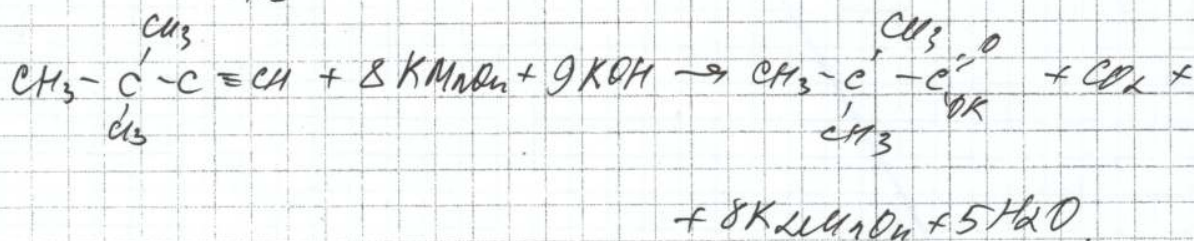 CH3 CH3 O
CH3 - C - C ≡ CH + 8 KMnO4 + 9 KOH → CH3 - C - C + CO2 +
CH3 CH3 OK
+ 8 K2MnO4 + 5 H2O